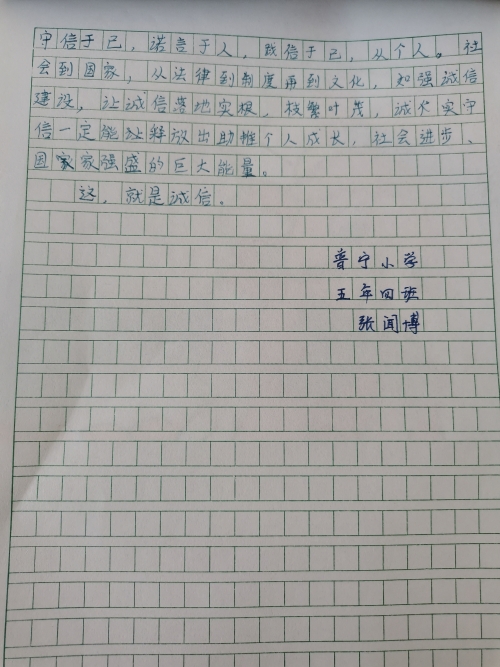 守信于己，诺言于人，践信于己，从个人。社
会到国家，从法律到制度再到文化，加强诚信
建设，让诚信落地实根，枝繁叶茂，诚实守
信一定能够释放出助推个人成长，社会进步、
国家家强盛的巨大能量。
这，就是诚信。
普宁小学
五年四班
张闻博